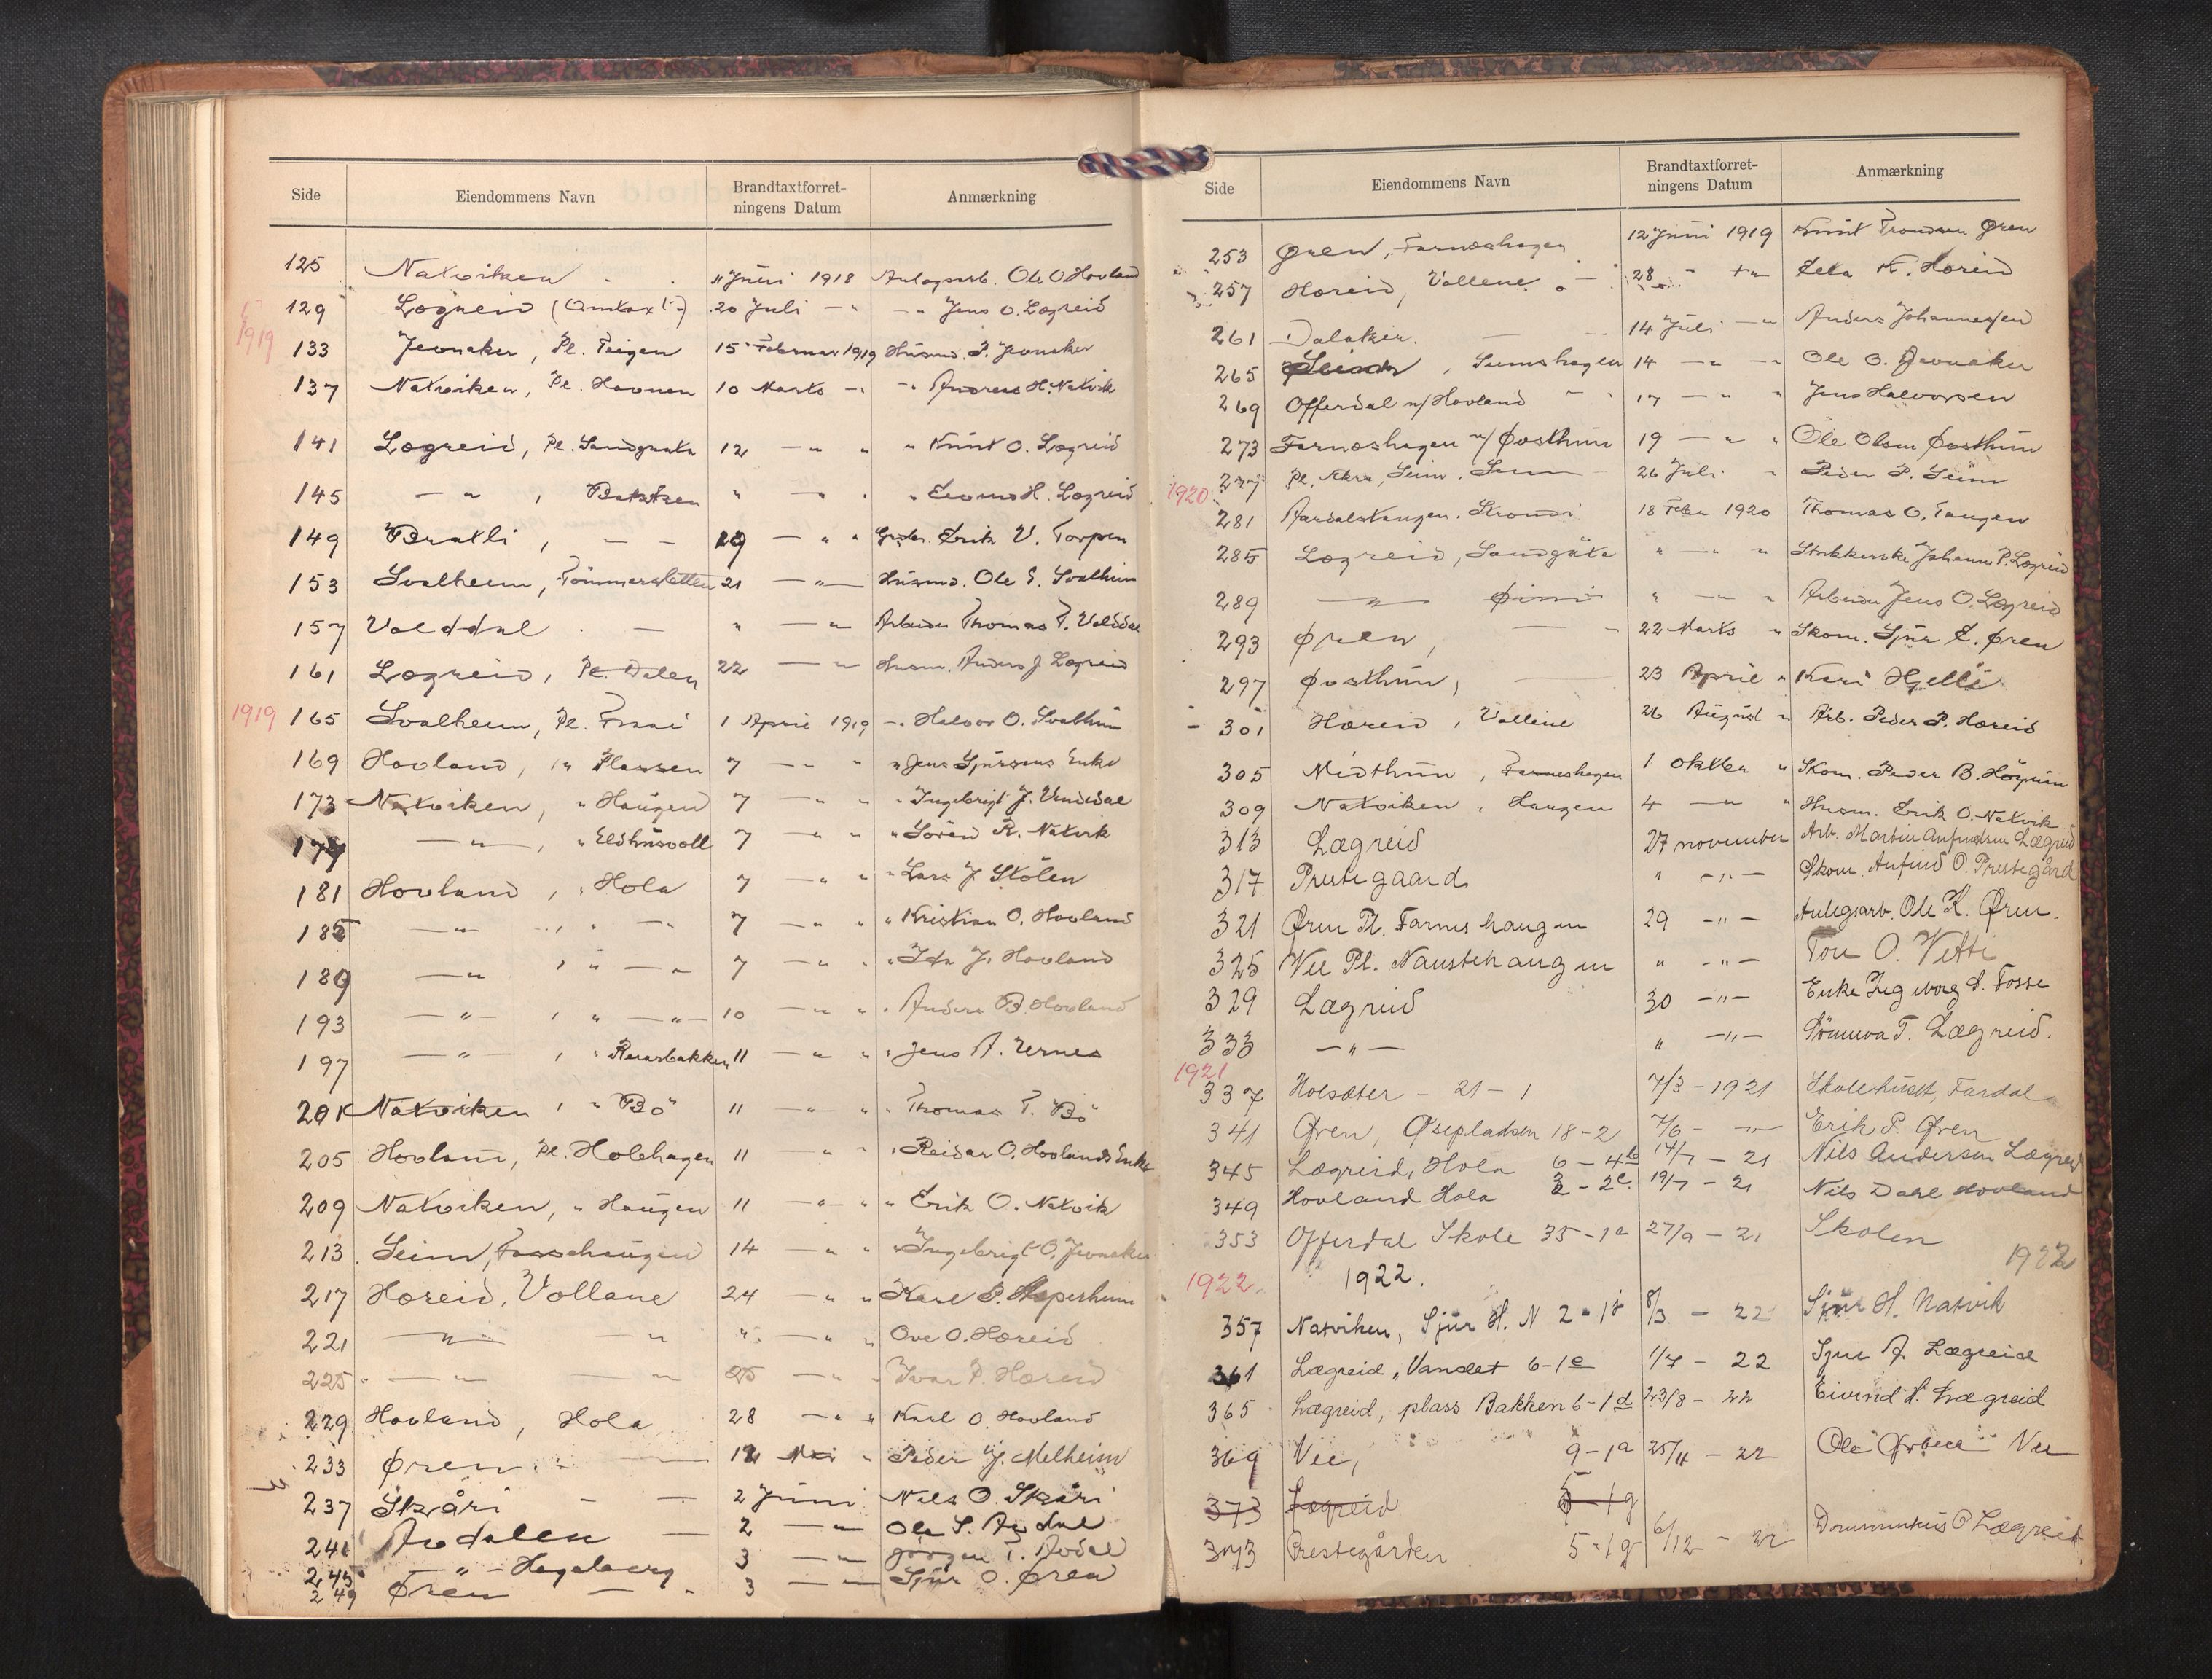 Side Eiendommens Navn Brandtaxtforret-ningens Datum Anmærkning
125 Natviken 11 Juni 1918 Anlægsarb. Ole O Hovland
129 Lægreid (Omtaxt) 20 Juli — " — " Jens O. Lægreid
1919
133 Jevnaker, Pl. Teigen 15 Februar 1919 Husmd. P. Jevnaker
137 Natviken, Pl. Havnen 10 Marts — " " Andreas H. Natvik
141 Lægreid, Pl. Sandgata 12 — " " " Knut O. Lægreid
145 — " , Bakken " — " " " H. Lægreid
149 Bratli, — — 19 — " " Erik V. Torpen
153 Svalheim, Tømmersletten 21 — " — Husmd. Ole S. Svalheim
157 Volddal . — " — " Arbeider Thomas T. Volddal
161 Lægreid, Pl. Dalen 22 — " Husm. Anders J. Lægreid
1919 165 Svalheim, Pl. 1 April 1919 — " Halvor O. Svalheim
169 Hovland, " Plassen 7 — " " " Jens Sjursens Enke
173 Natviken, " Haugen 7 — " " " Ingebrigt J. Vendedal
177 — " — , " Eldhusvoll 7 — " " " Sören R. Natvik
181 Hovland, " Hola 7 — " " " Lars J Stölen
185 — " — , " — " 7 — " " " Kristian O. Hovland
189 — " , " — " 7 — " " " Ida J. Hovland
193 — " — , " — " — 10 — " " " Anders B. Hovland
197 — " — , " Rearsbakken 11 — " " " Jens A. Vernes
201 Natviken, " Bö 11 — " " " Thomas T. Bö
205 Hovland, Pl. Holehagen 11 — " " " Reidar O. Hovlands Enke
209 Natviken, " Haugen 11 — " " " Erik O. Natvik
213 Seim, Fossehaugen 14 — " " " Ingebrigt O. Jevnaker
217 Hæreid, Vollane 24 — " " Karl P. Asperheim
221 — " — " " — " " Ove O. Hæreid
225 — " — " 25 — " " Ivar P. Hæreid
229 Hovland, Hola 28 — " " Karl O. Hovland
233 Øren — 12 Mai " Peder J. Melheim
237 Skåri — — 2 Juni Nils O. Skåri
241 Avdalen — 2 — " Ole S. Avdal
245 — " — Hageberg 3 — " Jørgen T. Avdal
249 Øren — " 3 — " Sjur O. Øren
Side Eiendommens Navn Brandtaxtforret-ningens Datum Anmærkning
253 Øren, Farneshagen 12 Juni 1919 Knut Trondsen Øren
257 Hæreid, Vollene 28 " " K. Hæreid
261 Dalaker. — 14 Juli — " Anders Johannessen
265 , Seimshagen 14 — " — " Ole O. Jevnaker
269 Offerdal u/Hovland 17 — " " Jens Halvorsen
273 Farneshagen u/Øvsthun 19 — " " Ole Olsen Øvsthun
1920 277 Pl. Akre, Seim. Seim 26 Juli " Peder P. Seim
281 Aardalstangen. Strondi 18 Febr 1920 Thomas O. Tangen
285 Lægreid, Sandgata " — " " Johanne P. Lægreid
289 — " — " — " " Arbeider Jens O. Lægreid
293 Øren, — " 22 Marts " Skom. Sjur E. Øren
297 Øvsthun, — 23 April " Kari Hjelle
301 Hæreid, Vollene 26 August " Arb. Peder P. Hæreid
305 Midthun, Farneshagen 1 oktber " Skom. Peder B. Höyum
309 Natviken, Haugen 4 — " " Husm. Erik O. Natvik
313 Lægreid 27 november Arb. Martin Anfindsen Lægreid
317 Prestegaard " — " — Skom. Anfind O. Prestegård
321 Øren Pl. Farneshaugen 29 — " — Anlegsarb. Ole K. Øren.
325 Vee Pl. Naustehaugen " — " — Tore O. Vetti
329 Lægreid 30 — " — Enke Ingeborg S. Fosse
333 — " — " — " — Sönneva T. Lægreid.
1921
337 Holsæter - 21 - 1 7/3 - 1921 Skolehuset, Fardal
341 Øren, Øsepladsen 18-2 7/6 - " Erik P. Øren
345 Lægreid, Hola 6 - 4b 14/7 - 21 Nils Andersen Lægreid
349 Hovland Hola 2 - 2c. 19/7 - 21 Nils Dahl Hovland
353 Offerdal Skole 35-1a 27/9 - 21 Skolen
1922. 1922. 1922
357 Natviken, Sjur H. N 2-1j 8/3 - 22 Sjur H. Natvik
361 Lægreid, Vandet 6-1e 1/7 - 22 Sjur A Lægreid
365 Lægreid, plass Bakken 6-1d 23/8 - 22 Eivind H. Lægreid
369 Vee, 9-1a 25/11 - 22 Ole Vee
373 Lægreid 5-1g
373 Prestegården 5-1g 6/12 - 22 O Lægreid